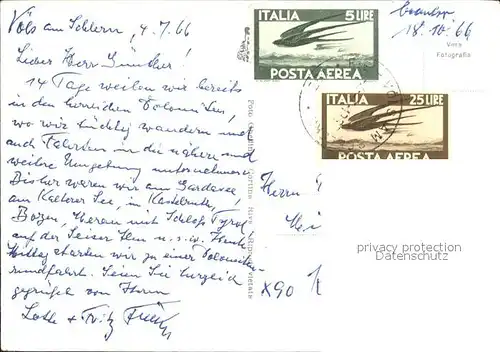 Völs am Schlern, 4.7.66
Lieber Herr Günther!
14 Tage weilen wir bereits
in den herrlichen Dolomiten,
wo wir tüchtig wandern und
auch Fahrten in die nähere und
weitere Umgebung unternehmen.
Bisher waren wir am Gardasee,
am Kalterer See, in Kastelruth,
Bozen, Meran mit Schloß Tyrol,
auf der Seiser Alm u.s.w. Heute
Mittag starten wir zu einer Dolomiten-
rundfahrt. Seien Sie herzlich
gegrüßet von Ihren
Lotte & Fritz
ITALIA 5 LIRE
POSTA AEREA
ITALIA 25 LIRE
POSTA AEREA
18.10.66
Vera
Fotografia
Herrn
X90
privacy protection
Datenschutz